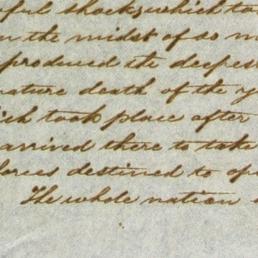 ful shock, which to
n the midst of so m
produced the deepes
ature death of the y
ich took place after
arrived there to take
forces destined to op
The whole nation